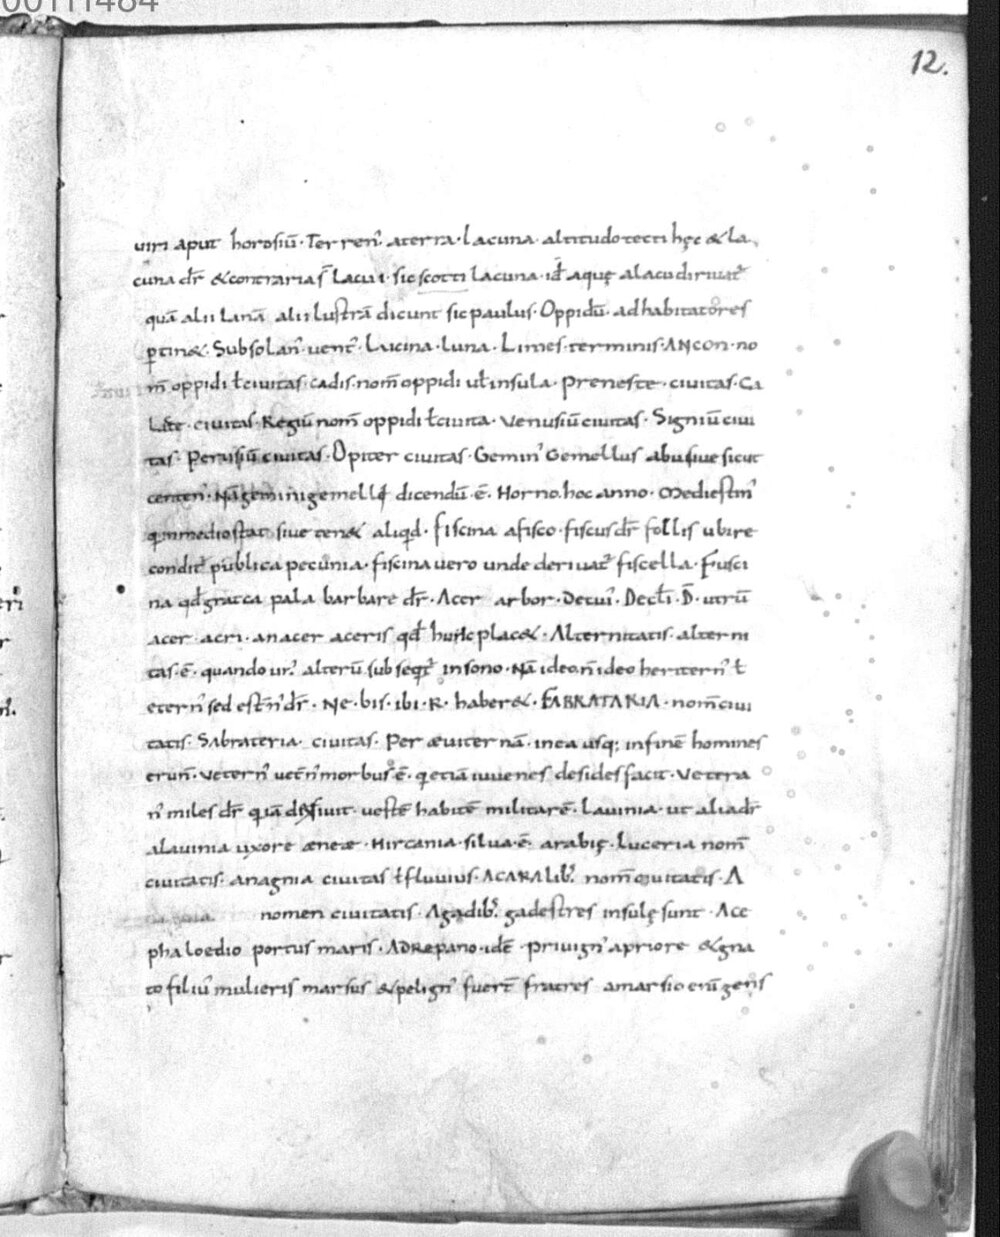 00111484
12.
uiri aput horosiū· Terren᷒· aterra· lacuna· altitudo tecti hęc & la
cuna dr̄ & contraria s̄ lacui· sic scotti lacuna· id aquę a lacu diriuat᷑
quā alii lanā alii lustrā dicunt sic paulus· Oppidū· ad habitatores
ꝑtin&· Subsolan᷒· uent᷒· Lucina· luna· Limes· terminis· ANcon· no
m̄ oppidi ł ciuitas· cadis· nom̄ oppidi uł insula· Preneste· ciuitas· Ca
ciuitas· Regiū nom̄ oppidi ł ciuita· Venusiū ciuitas· Signiū ciui
tas· Perusiū ciuitas· Opiter ciuitas· Gemin᷒ Gemellus abusiue sicut
centen᷒· Nā gemini gemelli dicendū· ē· Horno· hoc anno· Mediestin᷒
qui in medio stat siue ten& aliqd· fiscina a fisco· fiscus dr̄ follis ubi re
condit᷑ publica pecunia· fiscina uero unde deriuat᷑ fiscella· Fusci
na qd greca pala barbare dr̄· Acer arbor· Decui᷒· Decł· D̄· utrū
acer· acri· an acer aceris qd huic plac&· Alternitatis· altern
tas· ē· quando alterū subseqt᷑ in sono· Nā ideo n̄ ideo heritern᷒ ł
etern᷒ sed estn᷒ dr̄· Ne· bis· ibi· R· haber&· FABRATARIA· nom̄ ciui
tatis· Sabrateria· ciuitas· Per æuiternā· in ea usq; in finē homines
erun̄· Vetern᷒ uetn᷒ morbus· ē· q etiā iuuenes desides facit· Vetera
n᷒ miles dr̄ quia uestē habitē militarē· Lauinia· ut alia dr̄
a lauinia uxore æneæ· Hircania· silua· ē· arabię· Luceria nom̄
ciuitatis· anagnia ciuitas ł fluuius· ACARAlib᷒· nom̄ ciuitatis· A
nomen ciuitatis· Agadib᷒· gadestres insulę sunt· Ace
phaloedio portus maris· ADRepano· idē· priuign᷒ a priore & gna
to filiu᷒ mulieris marsus & peligu᷒ fuert̄ fratres a marsio enī gens